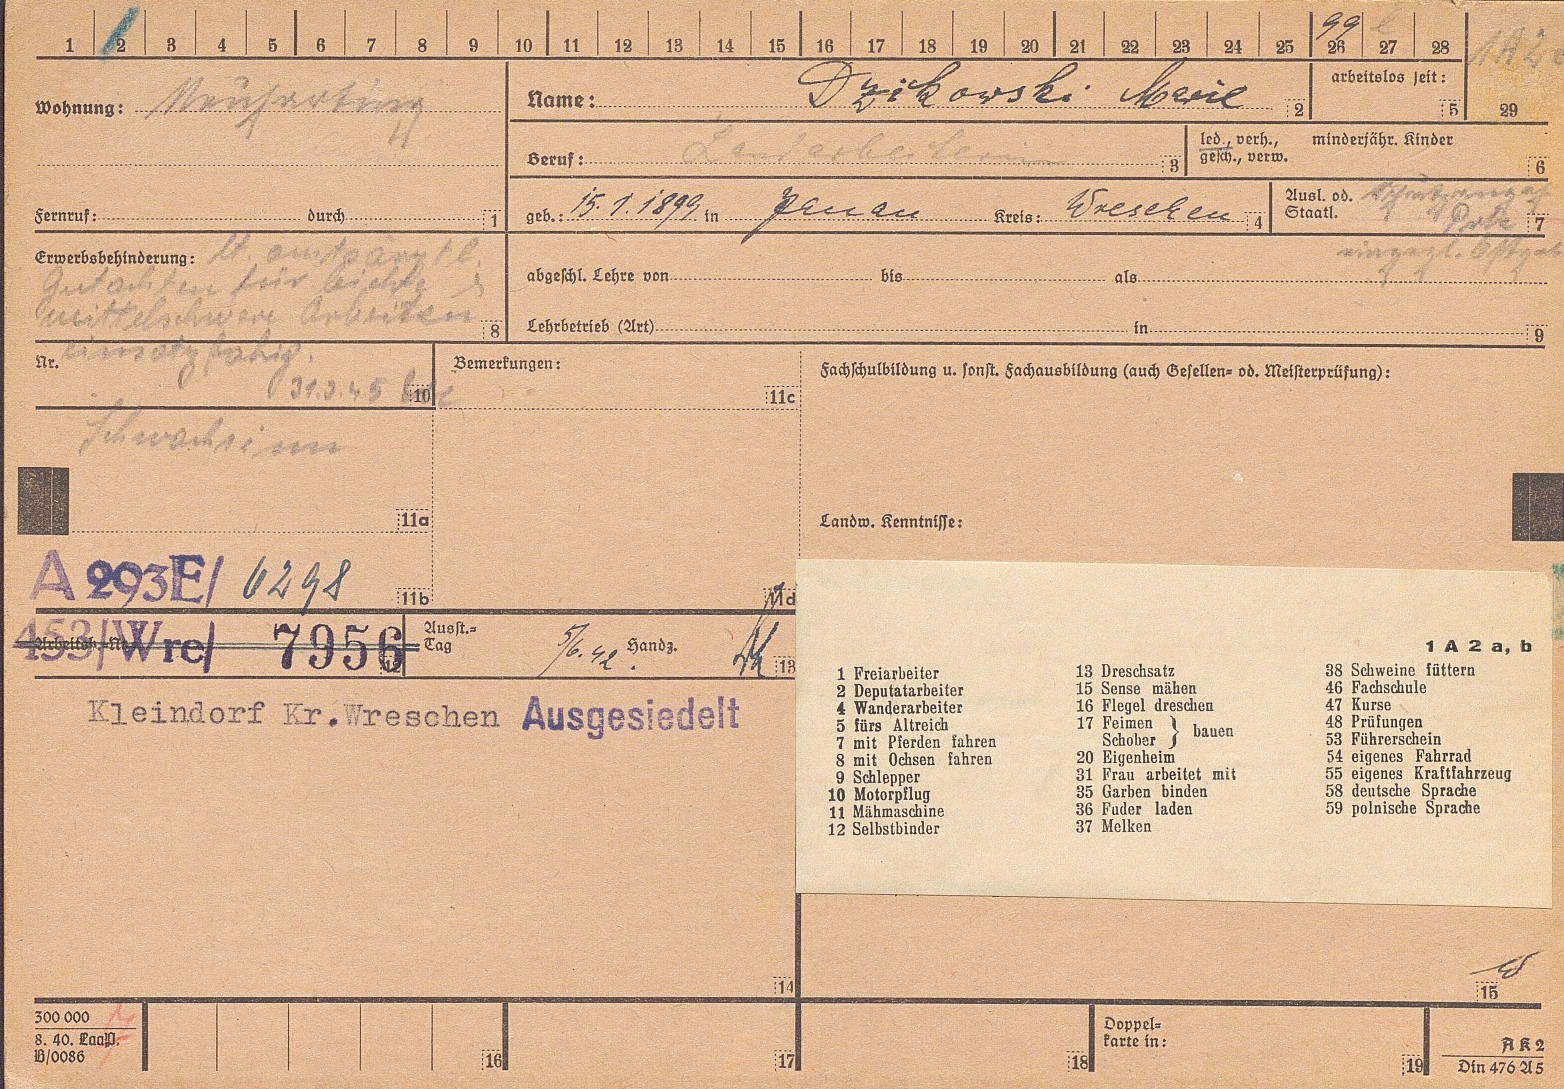 1 2 3 4 5 6 7 8 9 10 11 12 13 14 15 16 17 18 19 20 21 22 23 24 25 26 27 28 29
99
Wohnung:
Name: Dzikowski Marie 2
arbeitslos seit: 5
Beruf: Landarbeiterin 3
led., verh., gesch., verw.
minderjähr. Kinder 6
Fernruf: durch 1
geb.: 15.1.1899 in Janau Kreis: Wreschen 4
Ausl. od. Staatl. 7
Erwerbsbehinderung: lt. amtsärztl.
Gutachten für leichte &
mittelschwere Arbeiten 8
einsatzfähig.
31.3.45
abgeschl. Lehre von bis als
Lehrbetrieb (Art) in 9
Nr. 10
Schwachsinn
11a
Bemerkungen: 11c
Fachschulbildung u. sonst. Fachausbildung (auch Gesellen= od. Meisterprüfung):
Landw. Kenntnisse:
A 293E/ 6298 11b
11d
Arbeitsb.-Nr.
453/Wre/ 7956 12
Ausst.=
Tag 5/6.42. Handz. 13
Kleindorf Kr.Wreschen Ausgesiedelt
14
1 A 2 a, b
1 Freiarbeiter
2 Deputatarbeiter
4 Wanderarbeiter
5 fürs Altreich
7 mit Pferden fahren
8 mit Ochsen fahren
9 Schlepper
10 Motorpflug
11 Mähmaschine
12 Selbstbinder
13 Dreschsatz
15 Sense mähen
16 Flegel dreschen
17 Feimen
Schober } bauen
20 Eigenheim
31 Frau arbeitet mit
35 Garben binden
36 Fuder laden
37 Melken
38 Schweine füttern
46 Fachschule
47 Kurse
48 Prüfungen
53 Führerschein
54 eigenes Fahrrad
55 eigenes Kraftfahrzeug
58 deutsche Sprache
59 polnische Sprache
15
300 000
8. 40. LaaP.
B/0086
16
17
18
Doppel=
karte in: 19
AK 2
Din 476 A5